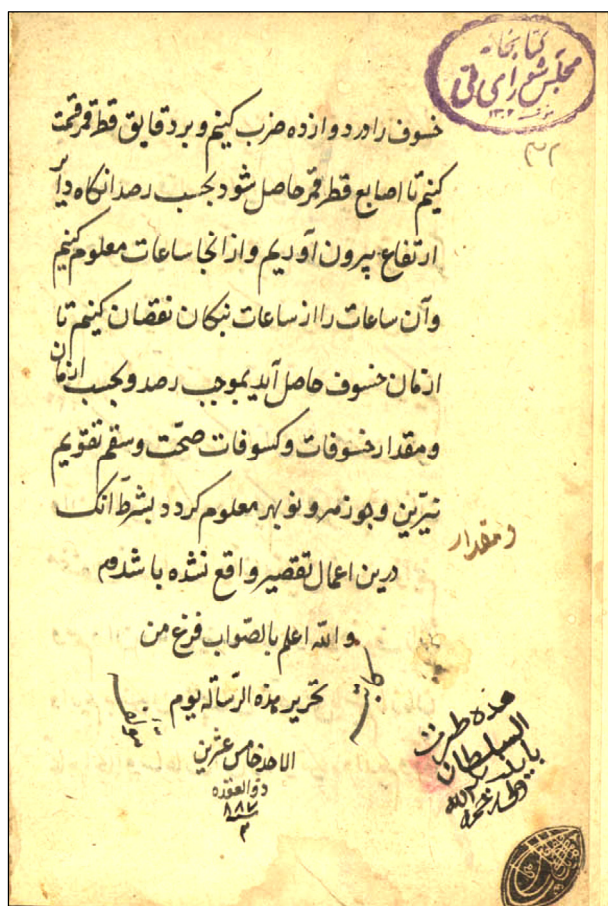 کتابخانه
مجلس شورای ملی
۱۳۰۲
۳۲
خسوف را در دوازده ضرب کنیم و بر دقایق قطر قمر قسمت
کنیم تا اصابع قطر قمر حاصل شود بحسب رصد انکاه دایر
ارتفاع بیرون آوریم و از انجا ساعات معلوم کنیم
و آن ساعات را از ساعات نبکان نقصان کنیم تا
ازمان خسوف حاصل آید بموجب رصد و بحسب ازمان
و مقدار خسوفات و کسوفات صحّت و سقم تقویم
نیّرین و جوزهر و نوبهر معلوم کردد بشرط آنک
و مقدار
درین اعمال تقصیر واقع نشده باشد
و الله اعلم بالصّواب فرغ من
تحریر هذه الرّسالة یوم
الاحد خامس عشرین
ذو القعده
۸۸۷
۳
هذه
السلطان
بایزید
الله